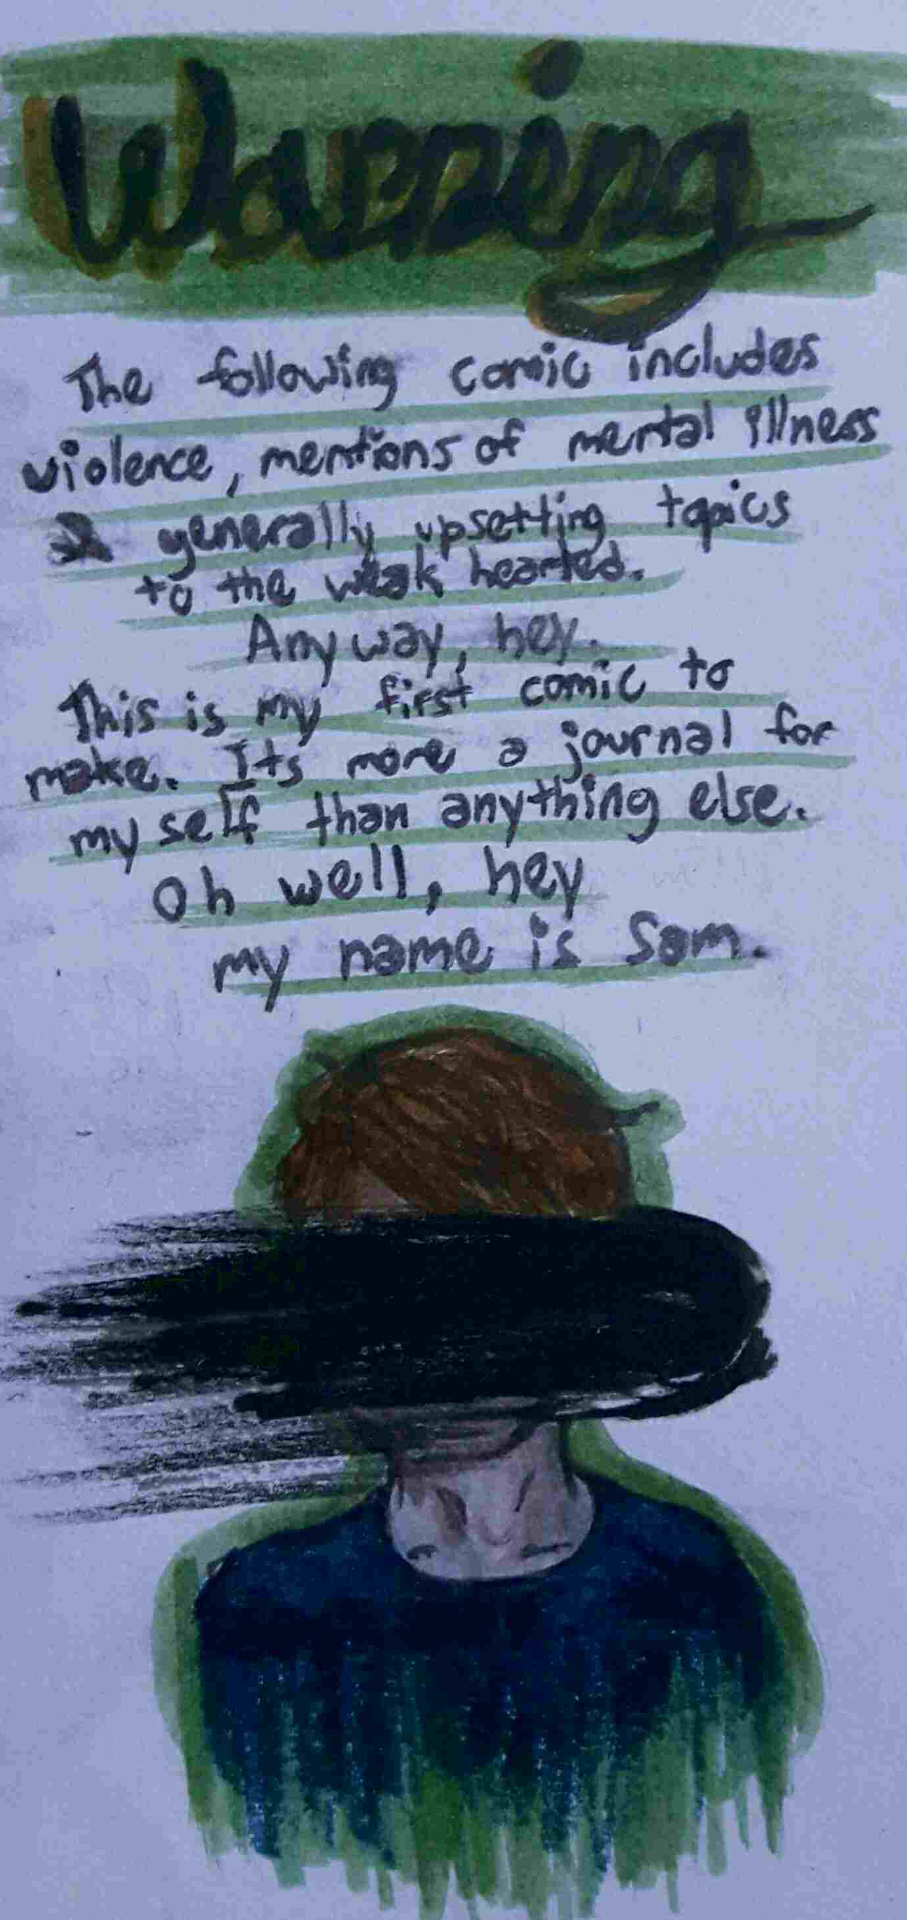 Warning
The following comic includes
violence, mentions of mental illness
& generally upsetting topics
to the weak hearted.
Anyway, hey.
This is my first comic to
make. Its more a journal for
my self than anything else.
Oh well, hey
my name is Sam.